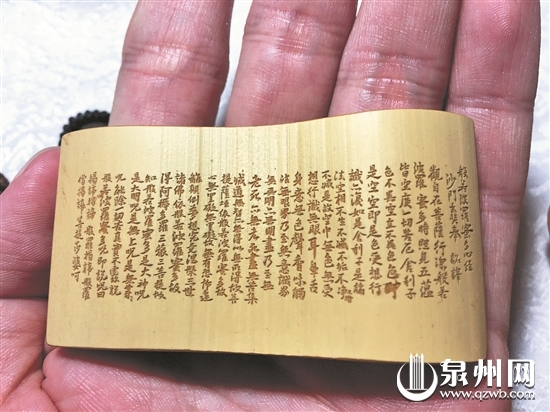 般若波羅蜜多心經
沙門玄奘奉 敕譯
觀自在菩薩行深般若
波羅蜜多時照見五蘊
皆空度一切苦厄舍利子
色不異空空不異色色即
是空空即是色受想行
識亦復如是舍利子是諸
法空相不生不滅不垢不淨不增
不減是故空中無色無受
想行識無眼耳鼻舌
身意無色聲香味觸
法無眼界乃至無意識界
無無明亦無無明盡乃至無
老死亦無老死盡無苦集
滅道無智亦無得以無所得故菩
提薩埵依般若波羅蜜多故
心無罣礙無罣礙故無有恐怖遠
離顛倒夢想究竟涅槃三世
諸佛依般若波羅蜜多故
得阿耨多羅三藐三菩提故
知般若波羅蜜多是大神咒
是大明咒是無上咒是無等等
咒能除一切苦真實不虛故說
般若波羅蜜多咒即說咒曰
揭諦揭諦 般羅揭諦 般羅
僧揭諦 菩提莎婆訶
泉州网
www.qzwb.com